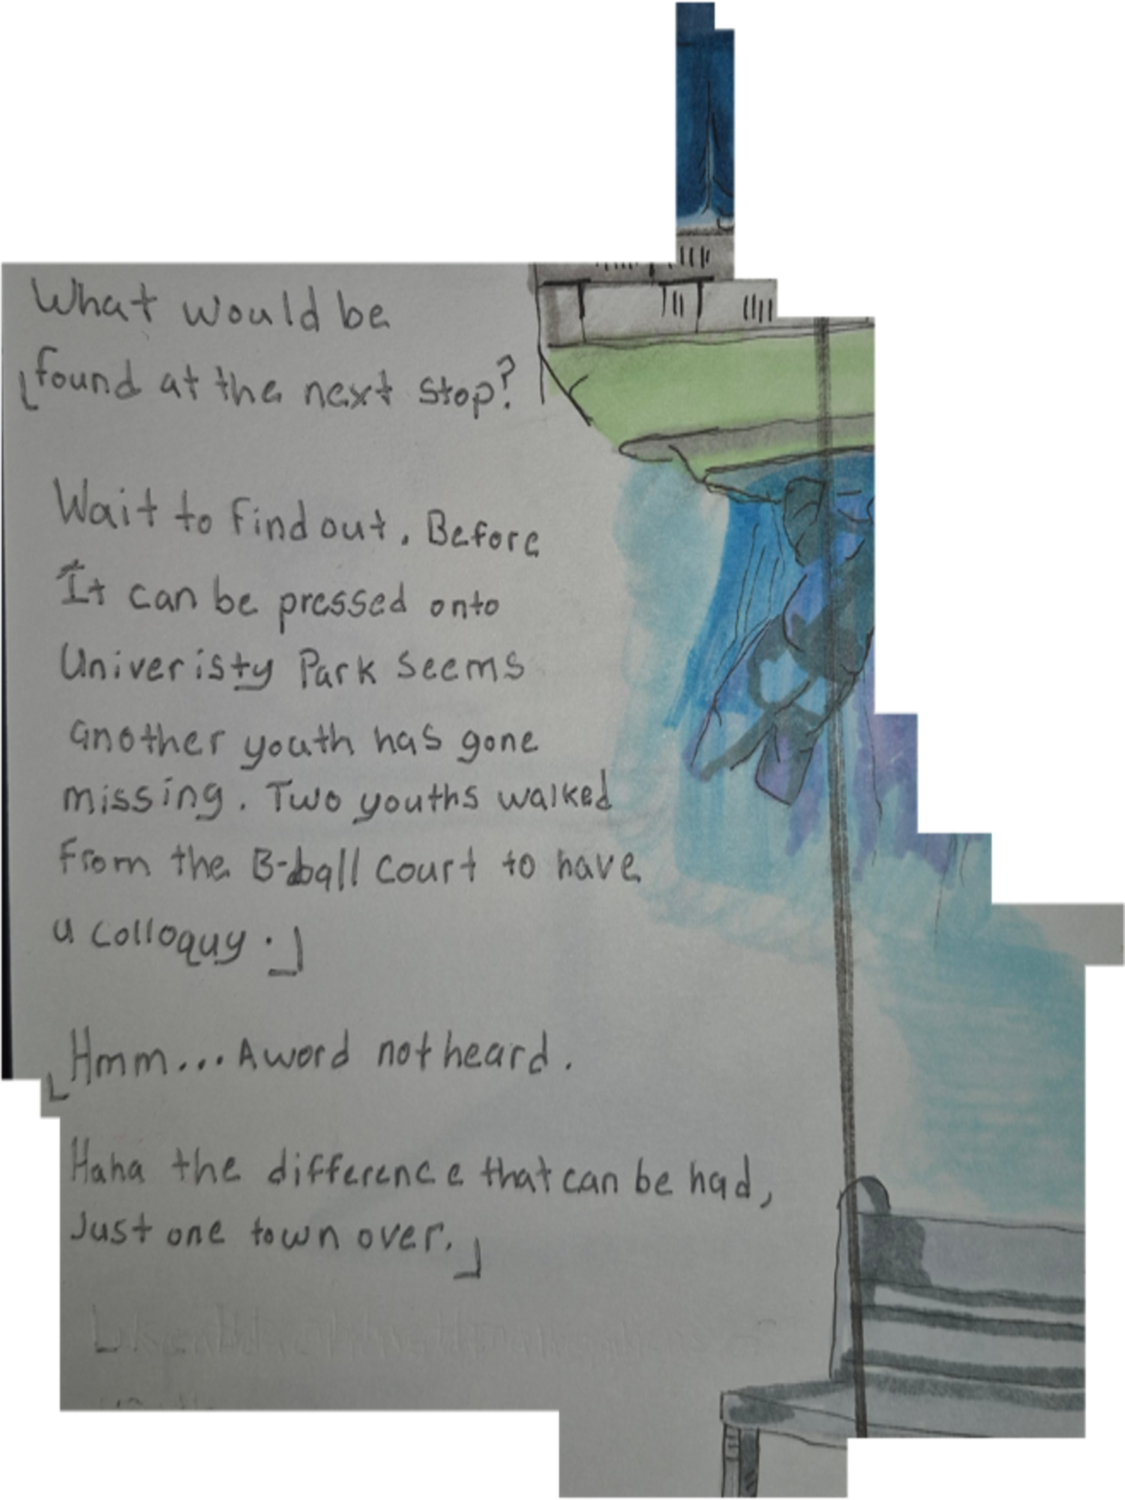 What would be
⌊found at the next stop?
Wait to find out. Before
It can be pressed onto
Univeristy Park seems
another youth has gone
missing. Two youths walked
from the B-ball court to have
a colloquy.⌋
⌊Hmm... A word not heard.
Haha the difference that can be had,
Just one town over.⌋